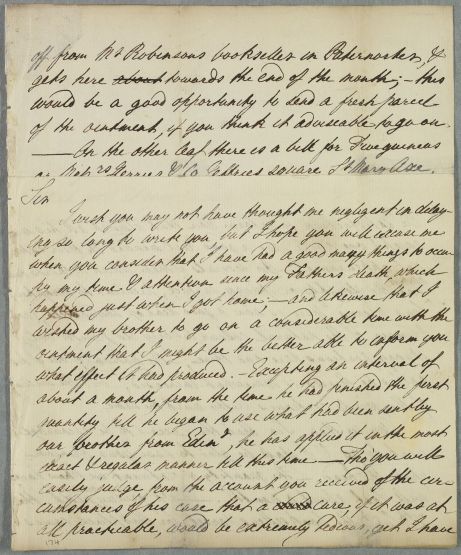 off from Mr Robinsons bookseller in Paternoster, &
gets here about towards the end of the month; — this
would be a good opportunity to send a fresh parcel
of the ointment, if you think it adviseable to go on.
— On the other leaf there is a bill for Five guineas
on & Co Jeffries square St Mary Axe.
Sir
I wish you may not have thought me negligent in delay-
ing so long to write you but I hope you will excuse me
when you consider that I have had a good many things to occu-
py my time & attention since my Fathers death, which
happened just when I got home; — and likewise that I
wished my brother to go on a considerable time with the
ointment that I might be the better able to inform you
what effect it had produced. — Excepting an interval of
about a month, from the time he had finished the first
quantity till he began to use what had been sent by
our brother from Edinr, he has applied it in the most
exact & regular manner till this time — Tho' you will
easily judge from the account you received of the cir-
cumstances of his case that a cure, if it was at
all practicable, would be extremely tedious, yet I have
174